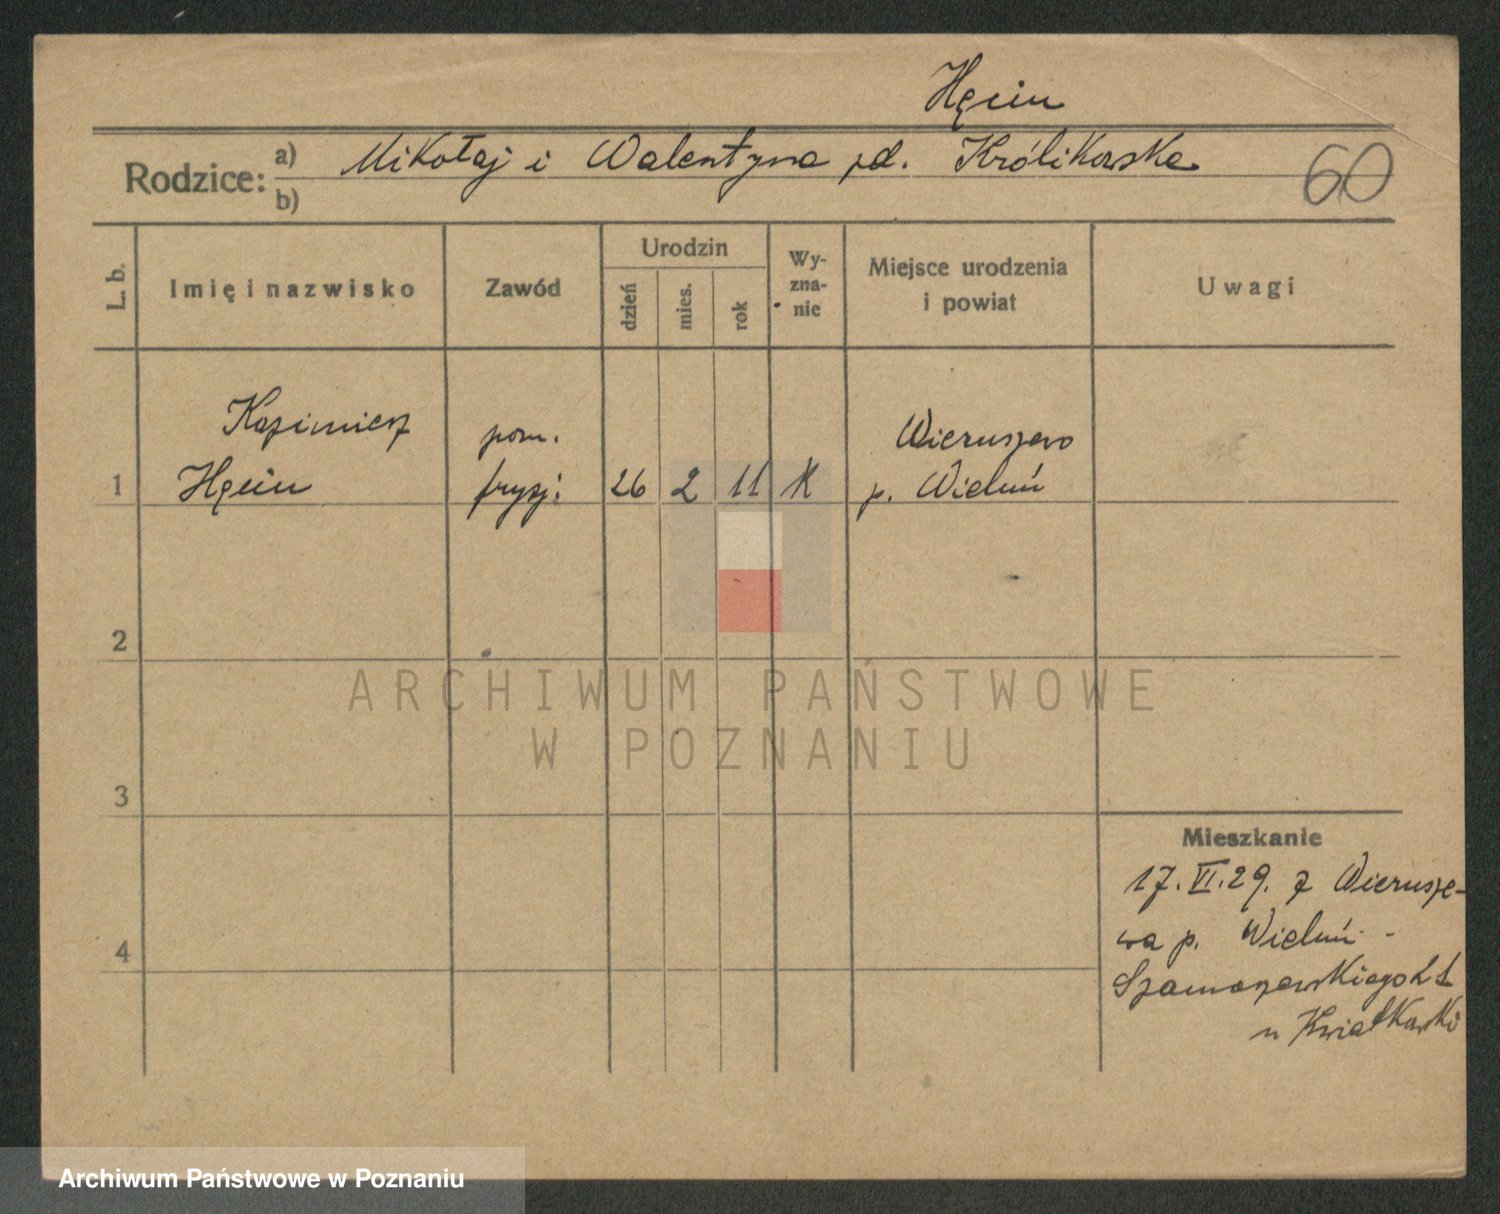 Hęciu
Rodzice: a) Mikołaj i Walentyna zd. Królikowska
b)
60
L. b.
Imię i nazwisko
Zawód
Urodzin
dzień
mies.
rok
Wy-
zna-
nie
Miejsce urodzenia
i powiat
Uwagi
Kazimierz
Hęciu
pom.
fryzj.
1
26
2
11
K
Wieruszewo
p. Wieluń
2
3
4
ARCHIWUM PAŃSTWOWE
W POZNANIU
Mieszkanie
17.VI.29. z Wierusze-
wa p. Wieluń -
Szamarzewskiego
u Kwiatkowski
Archiwum Państwowe w Poznaniu